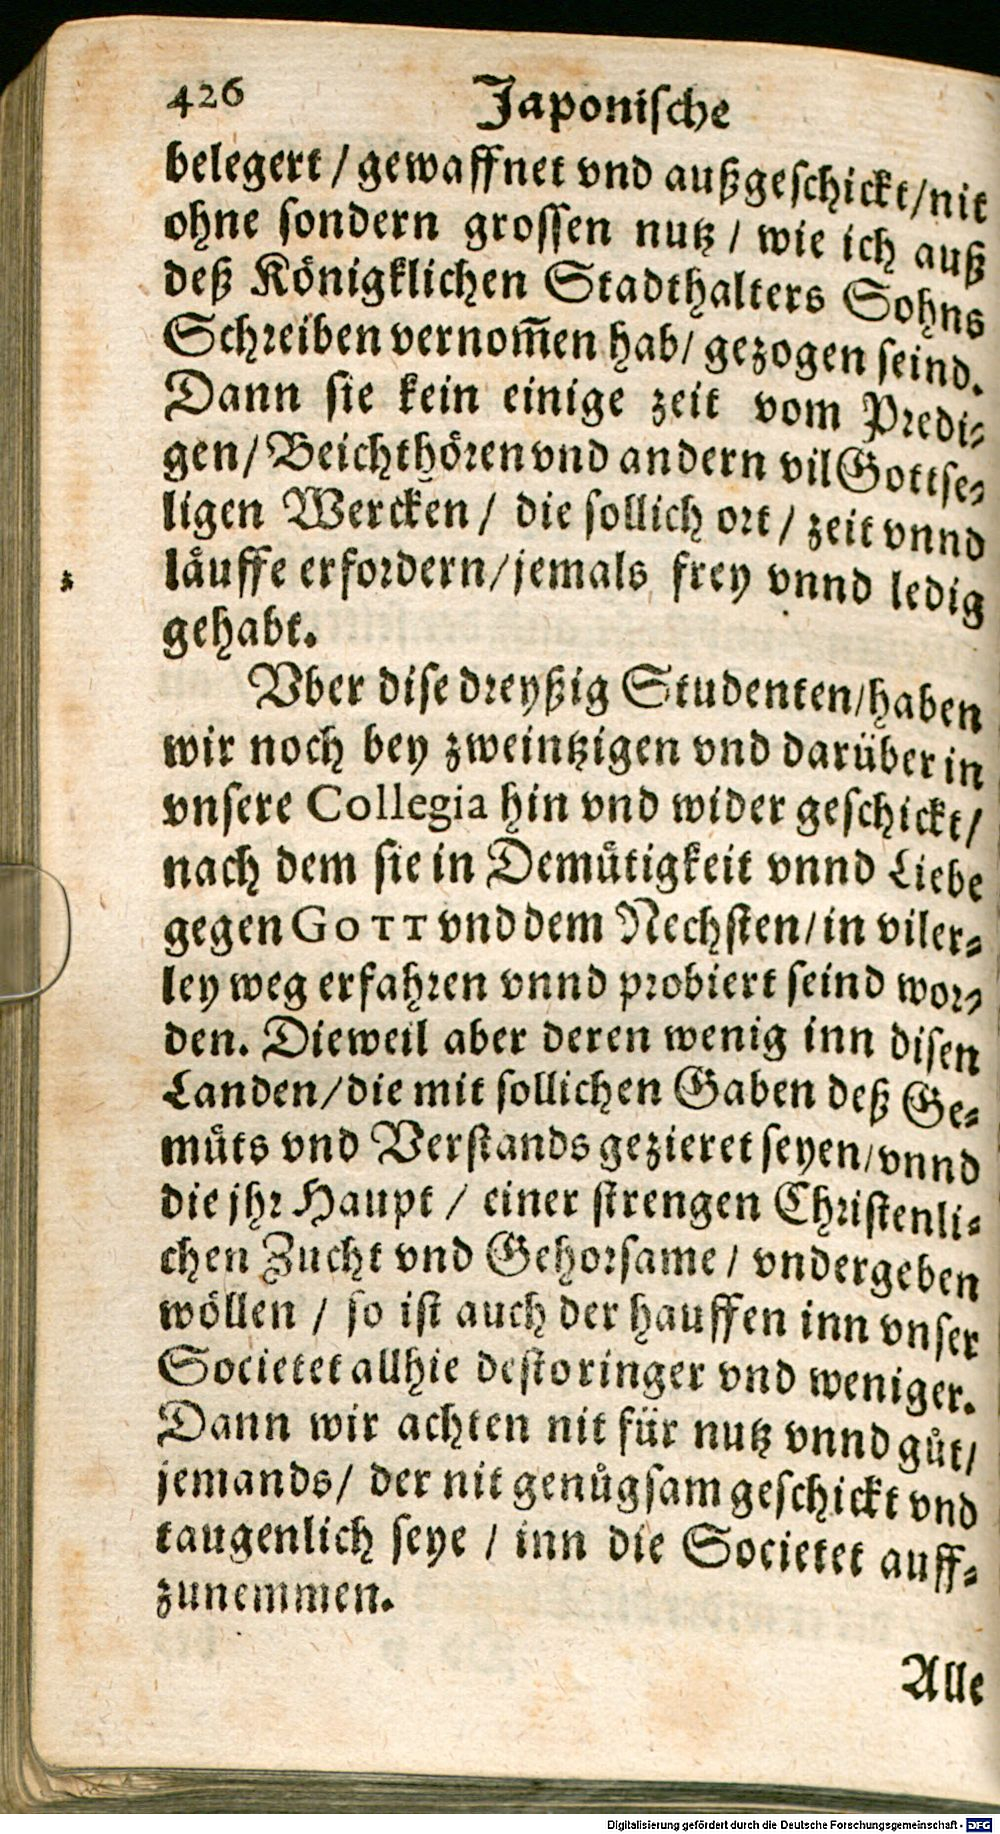 426 Japonische
belegert / gewaffnet vnd außgeschickt / nit
ohne sondern grossen nutz / wie ich auß
deß Königklichen Stadthalters Sohns
Schreiben vernom̃en hab / gezogen seind.
Dann sie kein einige zeit vom Predi-
gen / Beichthören vnd andern vil Gottse-
ligen Wercken / die sollich ort / zeit vnnd
läuffe erfordern / jemals frey vnnd ledig
gehabt.
Vber dise dreyßig Studenten / haben
wir noch bey zweintzigen vnd darüber in
vnsere Collegia hin vnd wider geschickt /
nach dem sie in Demuͤtigkeit vnnd Liebe
gegen GOTT vnd dem Nechsten / in viler-
ley weg erfahren vnnd probiert seind wor-
den. Dieweil aber deren wenig inn disen
Landen / die mit sollichen Gaben deß Ge-
muͤts vnd Verstands gezieret seyen / vnnd
die jhr Haupt / einer strengen Christenli-
chen Zucht vnd Gehorsame / vndergeben
wöllen / so ist auch der hauffen inn vnser
Societet allhie desto ringer vnd weniger.
Dann wir achten nit für nutz vnnd guͦt /
jemands / der nit genuͦgsam geschickt vnd
taugenlich seye / inn die Societet auff-
zunemmen.
Alle
Digitalisierung gefördert durch die Deutsche Forschungsgemeinschaft - DFG